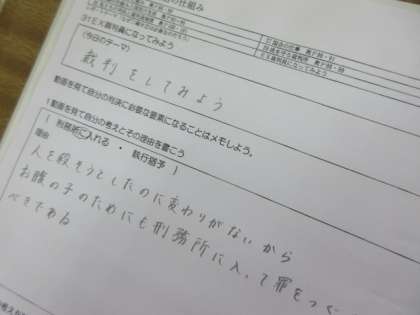 の仕組み
31EX裁判員になってみよう
(今日のテーマ)
裁判をしてみよう
動画を見て自分の判決に必要な要素になることはメモしよう。
1動画を見て自分の考えとその理由を書こう
( 刑務所に入れる ・ 執行猶予 )
理由
人を殺そうとしたのに変わりがないから
お腹の子のためにも刑務所に入って罪をつぐ
べきである